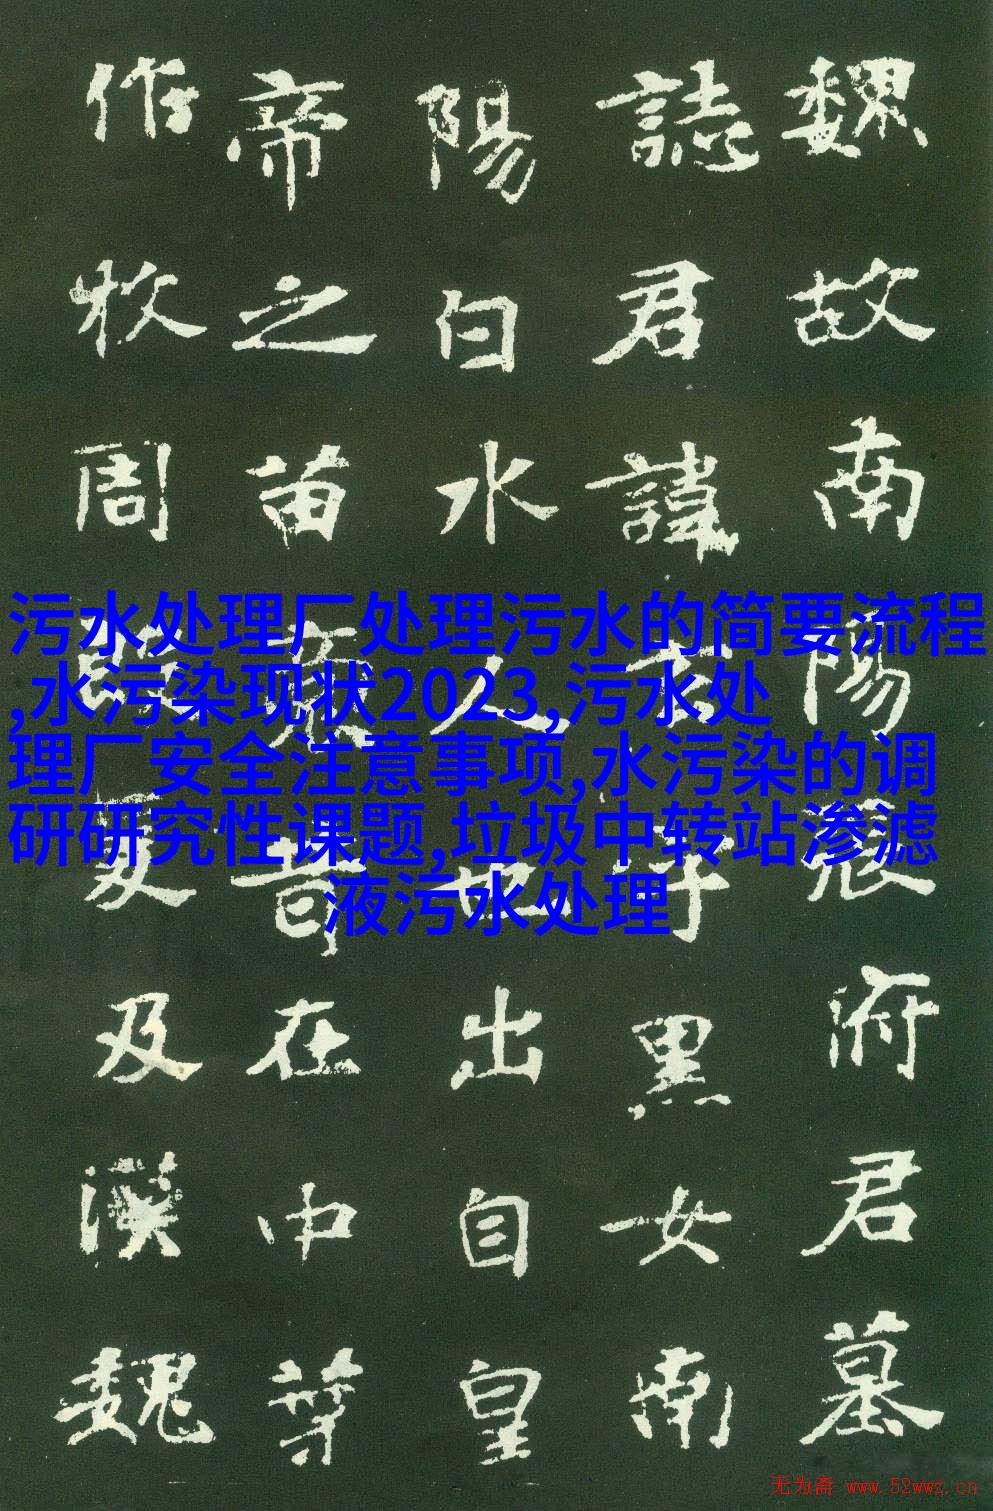 魏故南陽張府君墓
誌君諱玄字黑女南
陽白水人也出自皇
帝之苗裔昔在中葉
作牧周殷爰及漢魏
污水处理厂处理污水的简要流程
,水污染现状2023,污水处
理厂安全注意事项,水污染的调
研研究性课题,垃圾中转站渗滤
液污水处理
无为斋 www.52wwz.cn